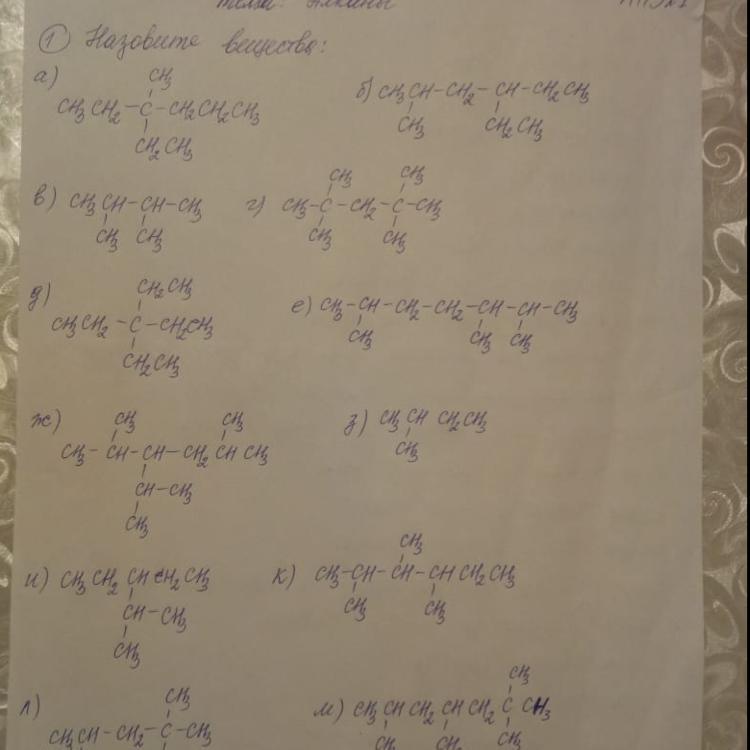 тема: Алканы
① Назовите вещества:
а)
CH3
CH3CH2 – C – CH2CH2CH3
CH2CH3
б) CH3CH – CH2 – CH – CH2CH3
CH3 CH2CH3
в) CH3CH – CH – CH3
CH3 CH3
г)
CH3 CH3
CH3 – C – CH2 – C – CH3
CH3 CH3
д)
CH2CH3
CH3CH2 – C – CH2CH3
CH2CH3
е) CH3 – CH – CH2 – CH2 – CH – CH – CH3
CH3 CH3 CH3
ж)
CH3 CH3
CH3 – CH – CH – CH2 CH CH3
CH – CH3
CH3
з) CH3 CH CH2CH3
CH3
и) CH3 CH2 CH CH2 CH3
CH – CH3
CH3
к)
CH3
CH3 – CH – CH – CH CH2CH3
CH3 CH3
л)
CH3
CH3CH – CH2 – C – CH3
м)
CH3
CH3 CH CH2 CH CH2 C CH3
CH3 CH3 CH3